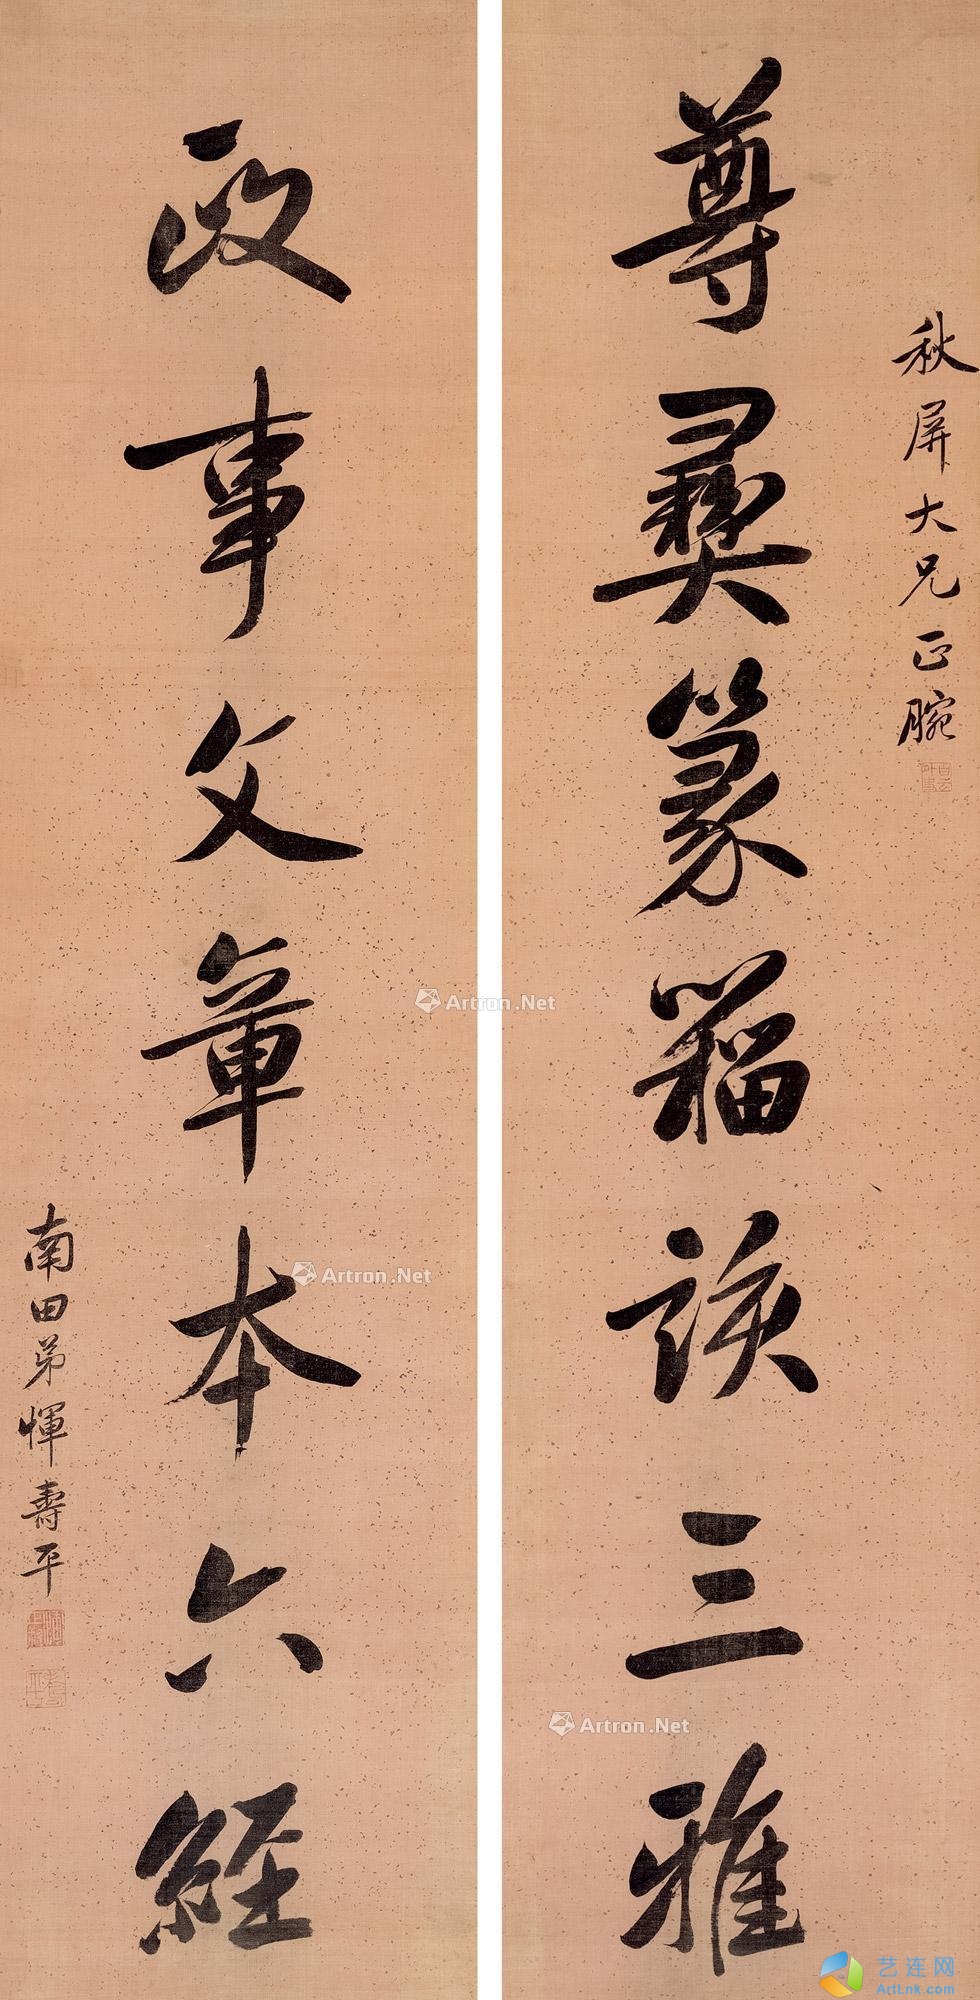 秋屏大兄正腕
尊彝篆籀談三雅
政事文章本六經
南田弟惲壽平
Artron.Net
Artron.Net
Artron.Net
艺连网
ArtLnk.com